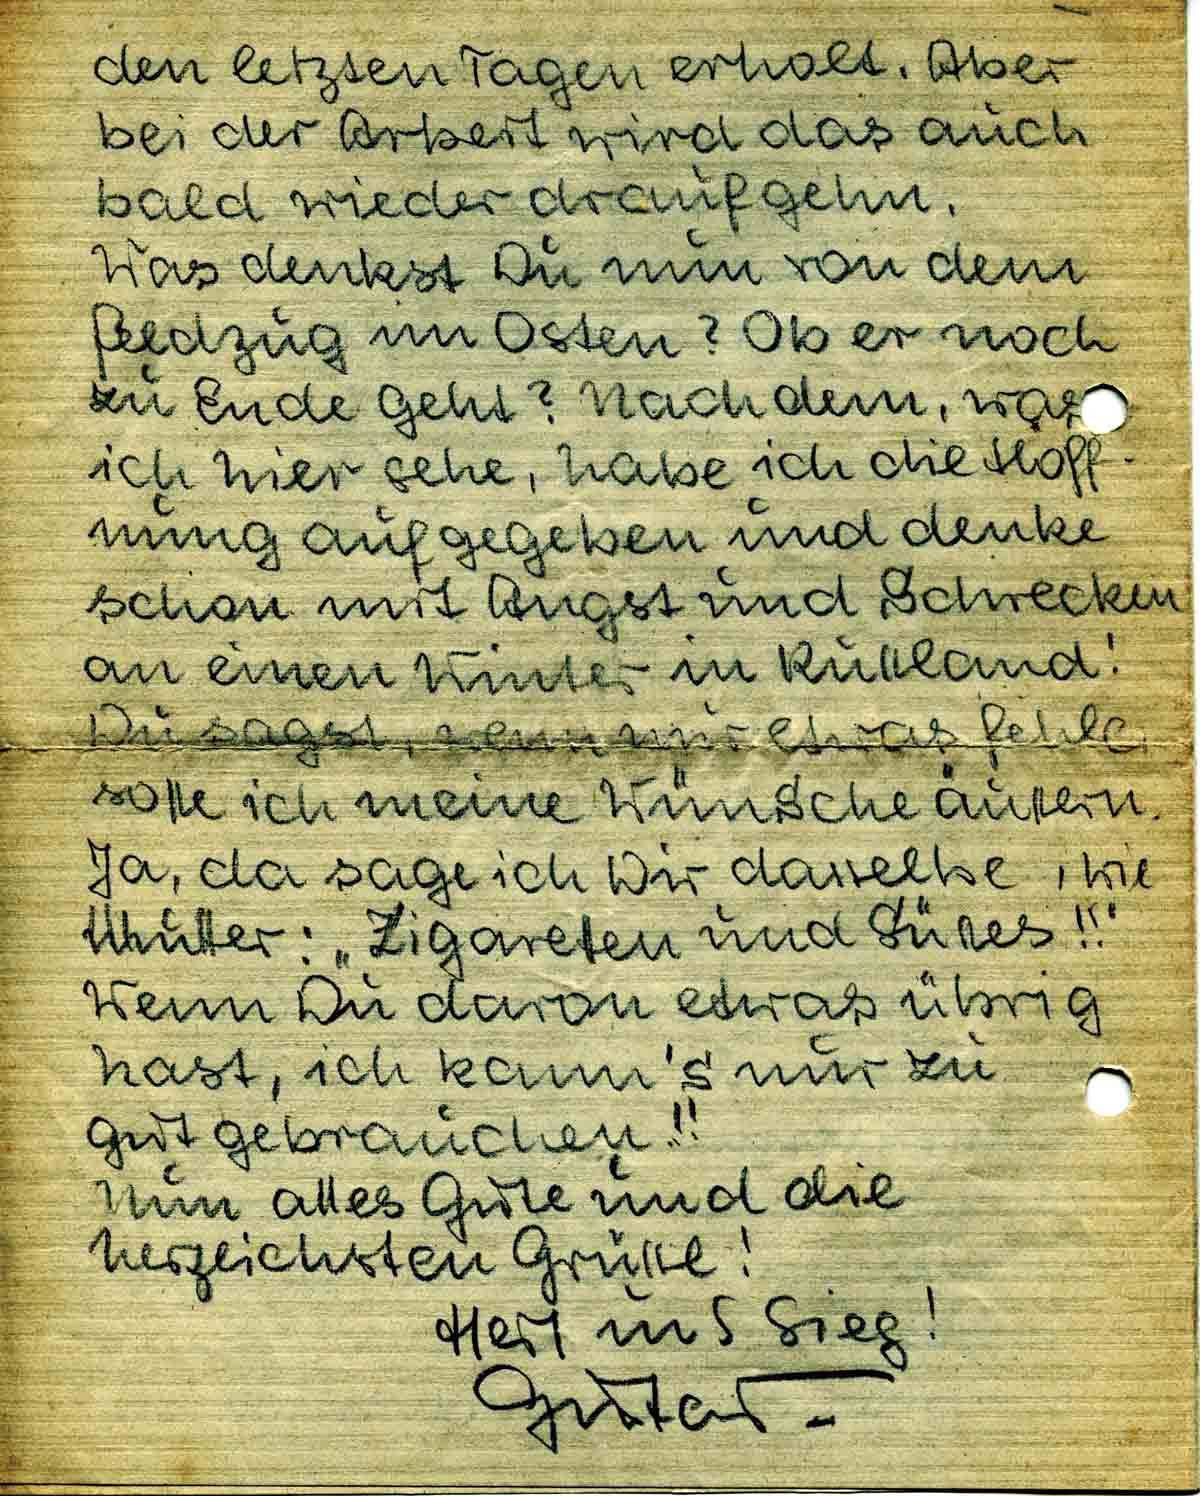 den letzten Tagen erholt. Aber
bei der Arbeit wird das auch
bald wieder draufgehn.
Was denkst Du nun von dem
Feldzug im Osten? Ob er noch
zu Ende geht? Nach dem, was
ich hier sehe, habe ich die Hoff-
nung aufgegeben und denke
schon mit Angst und Schrecken
an einen Winter in Russland!
Du sagst, wenn mir etwas fehle,
solle ich meine Wünsche äussern.
Ja, da sage ich Dir dasselbe, wie
Mutter: „Zigareten und Süsses!!"
Wenn Du davon etwas übrig
hast, ich kann's nur zu
gut gebrauchen!!
Nun alles Gute und die
herzlichsten Grüsse!
Heil und Sieg!
Gustav